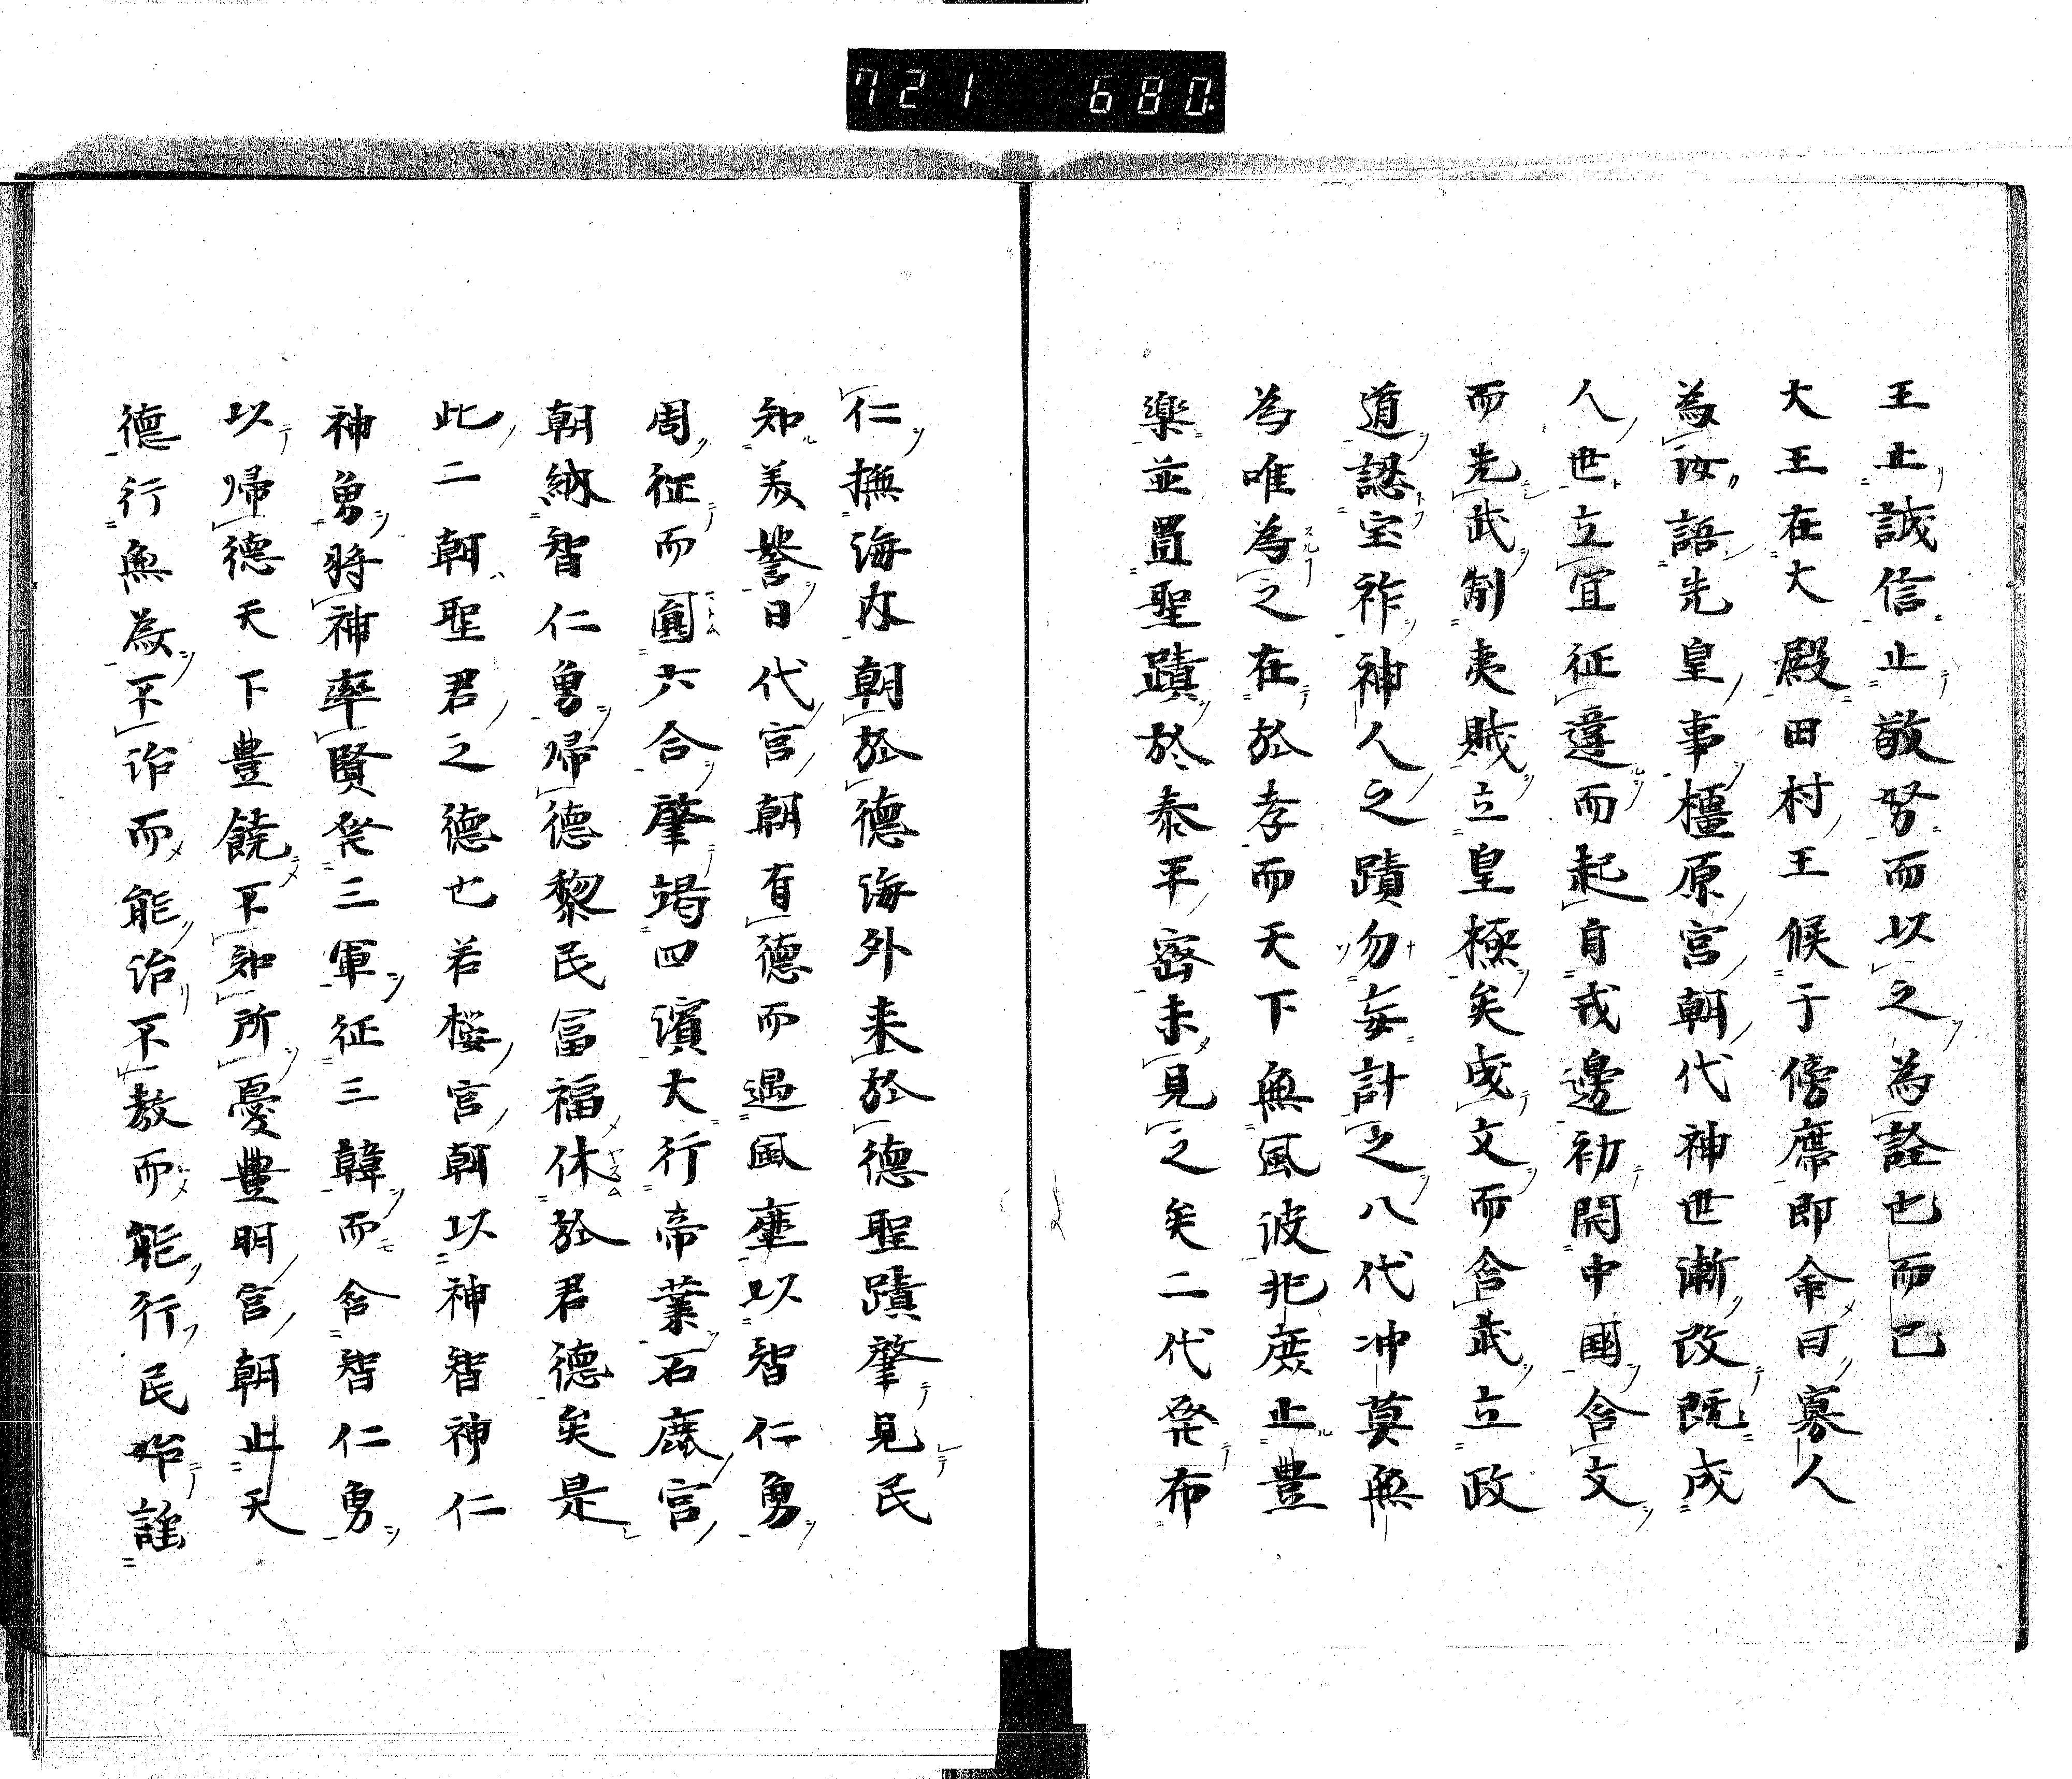 721 680
王止誠信止敬努而以之為詮也而已
大王在大殿田村王候于傍席即命曰寡人
為汝語先皇事橿原宮朝代神世漸改既成
人世立宜征違而起自戎邊初開中國含文
而先武制夷賊立皇極矣成文而含武立政
道認宝祚神人之蹟勿妄計之八代冲莫無
為唯為之在於孝而天下無風波兆庶止豊
樂並置聖蹟於泰平密未見之矣二代発布
仁撫海内朝於德海外来於德聖蹟肇見民
知美誉日代宮朝有德而遇風塵以智仁勇
周征而圓六合肇竭四濱大行帝業石廉宮
朝納智仁勇帰德黎民冨福休於君德矣是
此二朝聖君之德也若桜宮朝以神智神仁
神勇將神率賢発三軍征三韓而含智仁勇
以帰德天下豊饒不知所憂豊明宮朝止天
德行無為不治而能治不教而能行民始謡